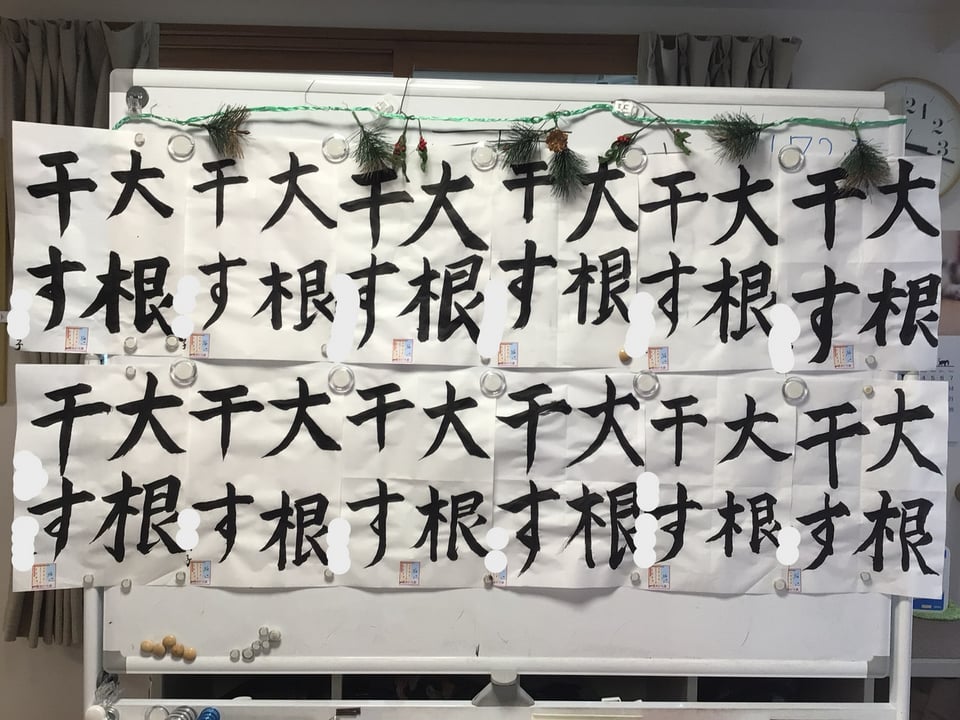 大根
干す
大根
干す
大根
干す
大根
干す
大根
干す
大根
干す
大根
干す
大根
干す
大根
干す
大根
干す
大根
干す
大根
干す